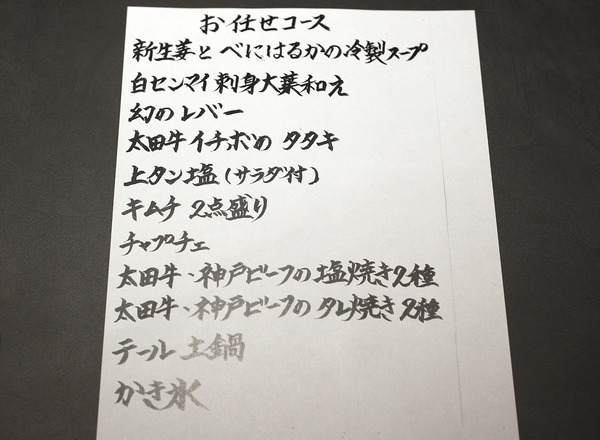 お任せコース
新生姜と べにはるかの冷製スープ
白センマイ刺身大葉和え
幻のレバー
太田牛イチボのタタキ
上タン塩(サラダ付)
キムチ 2点盛り
チャプチェ
太田牛・神戸ビーフの塩焼き2種
太田牛・神戸ビーフのタレ焼き2種
テール土鍋
かき氷